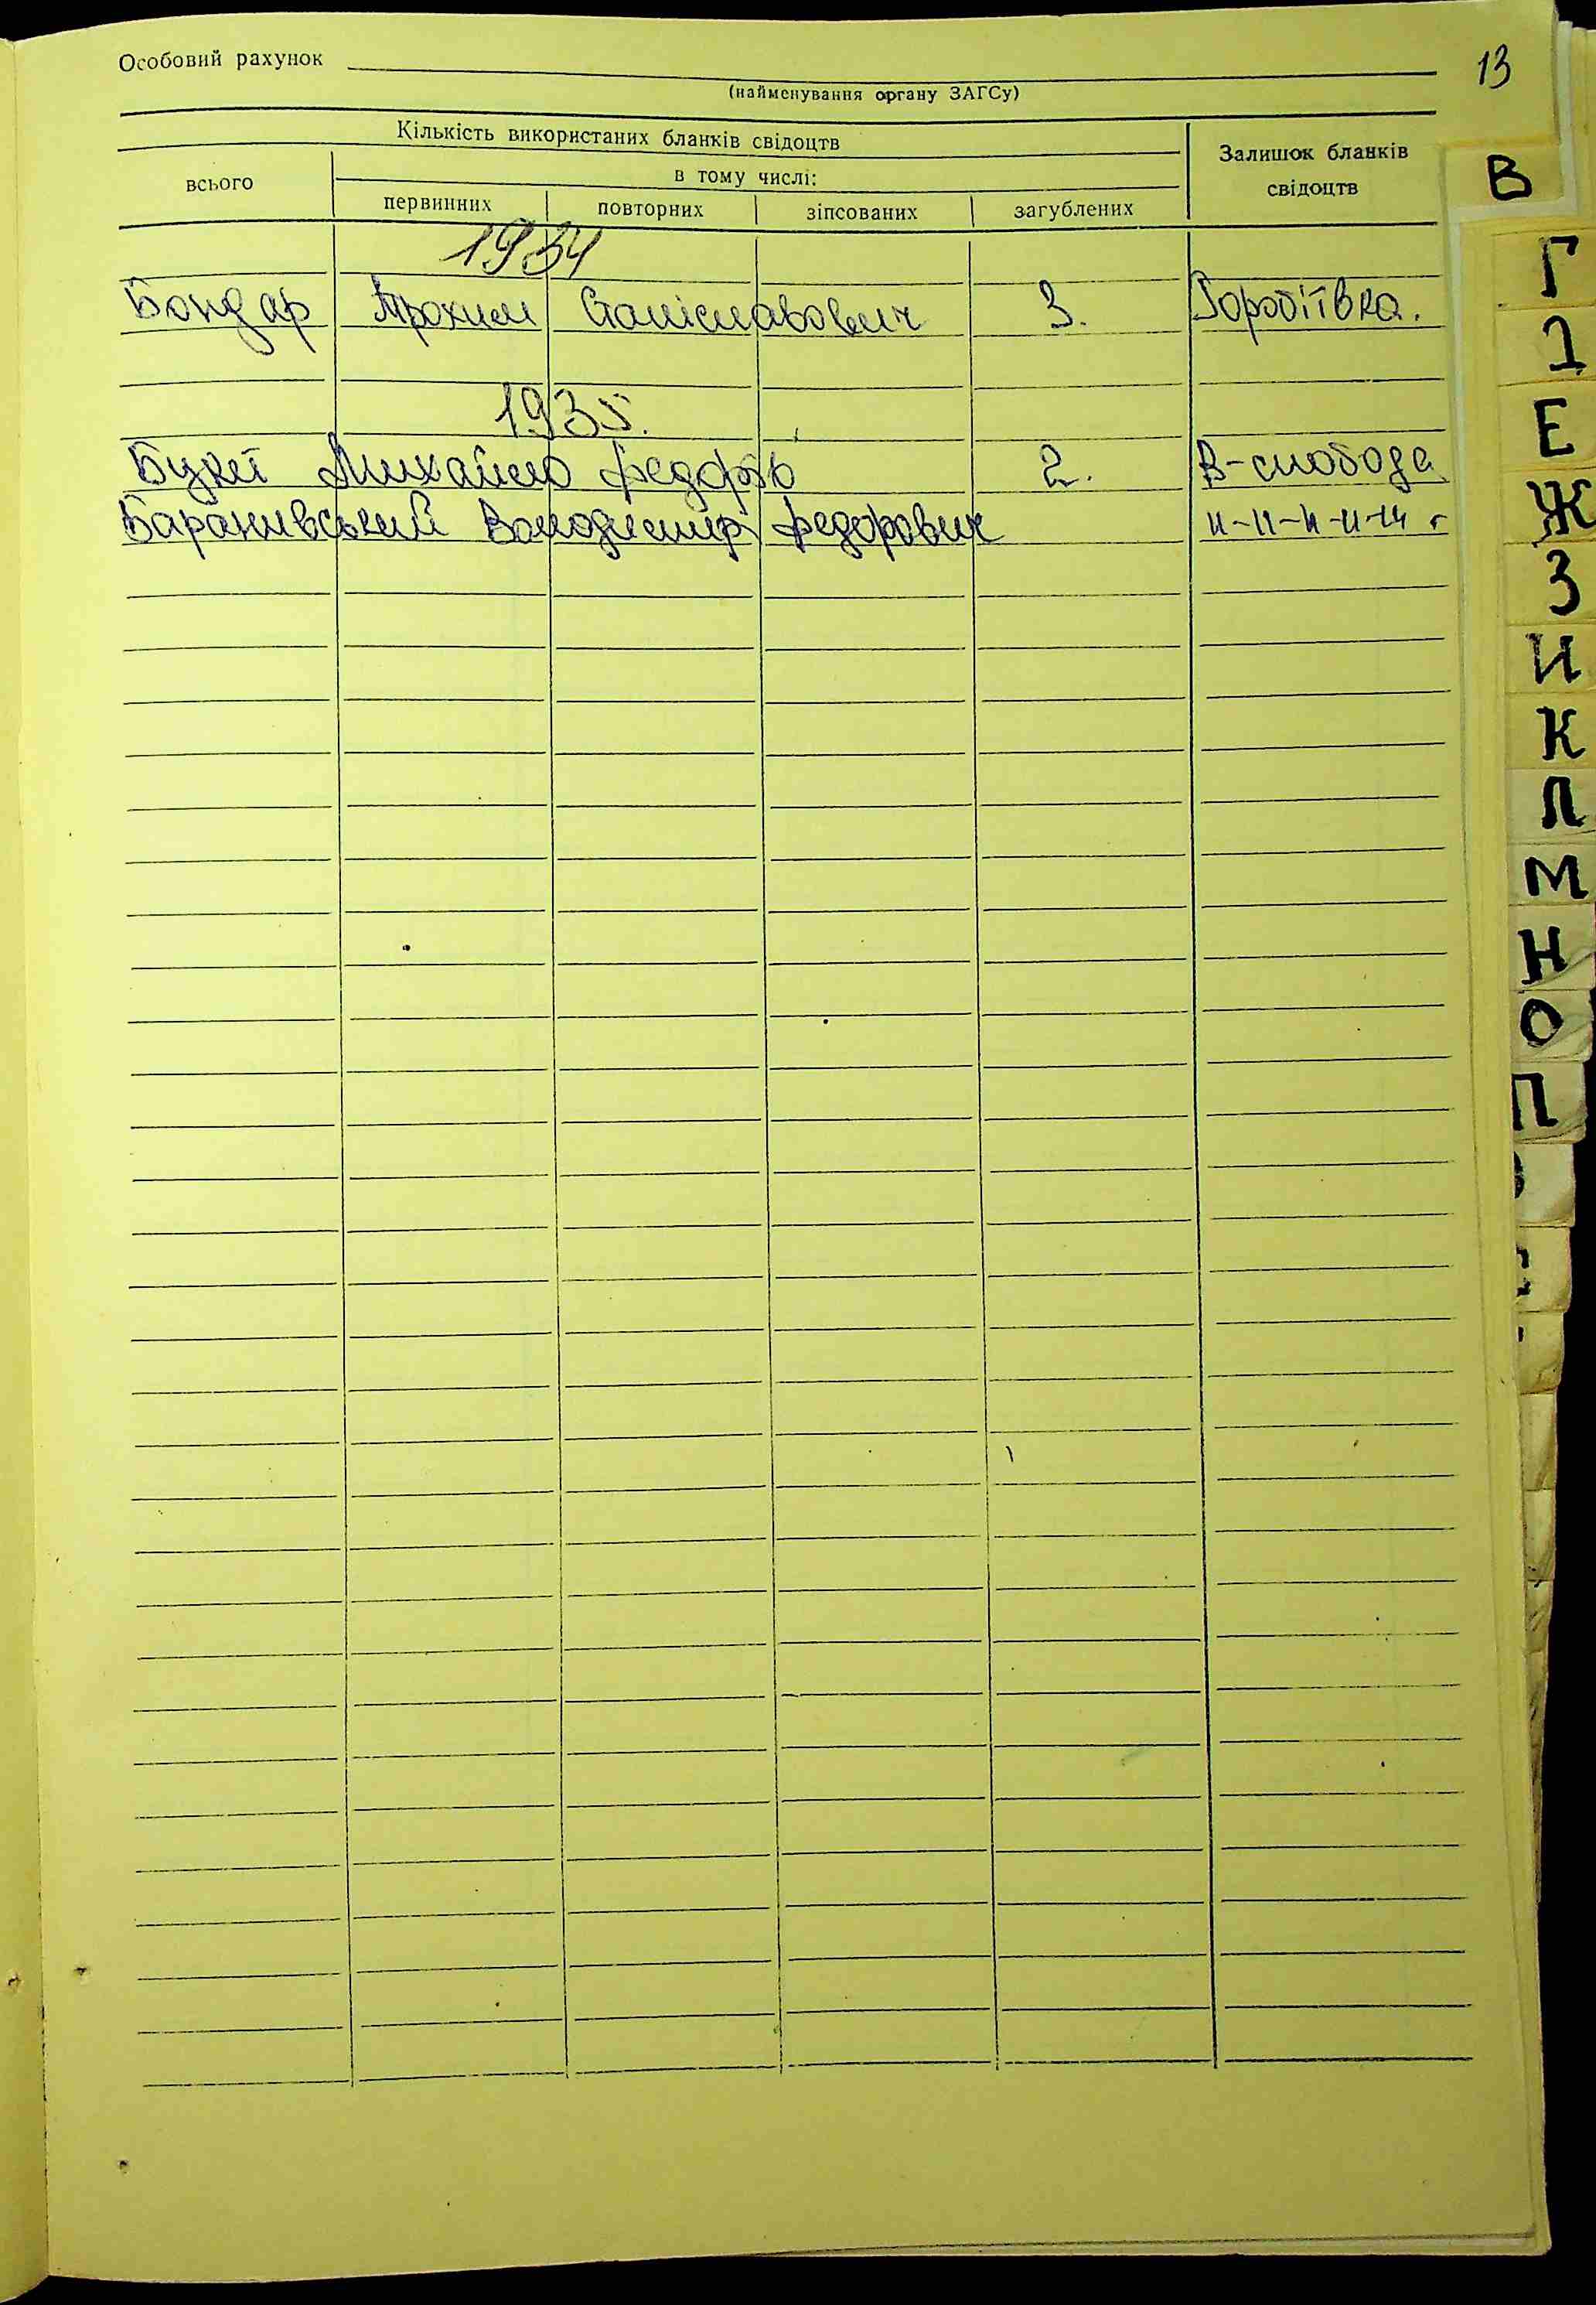 Особовий рахунок
13
(найменування органу ЗАГСу)
Кількість використаних бланків свідоцтв
Залишок бланків свідоцтв
всього
в тому числі:
первинних повторних зіпсованих загублених
1934
Бондар Трохим Станіславович 3. Горобіївка.
1935.
Михайло 2. В-слобода
Володимир Федорович
В
Г
Д
Е
Ж
З
И
К
Л
М
Н
О
П